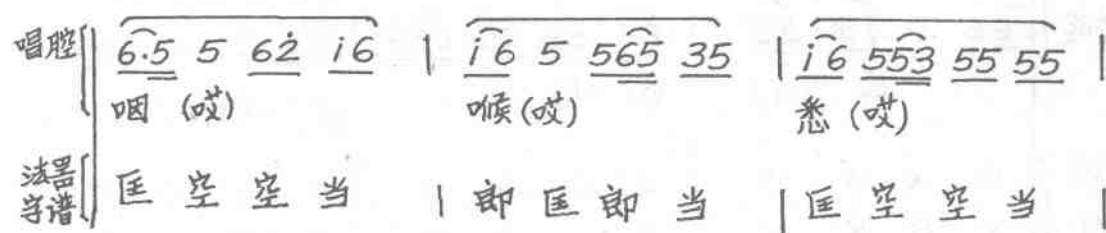 唱腔 6·5 5 62̇ i6 | i6 5 565 35 | i6 553 55 55 |
咽 (哎) 喉 (哎) 悉 (哎)
法器字谱 匡 空 空 当 | 郎 匡 郎 当 | 匡 空 空 当 |